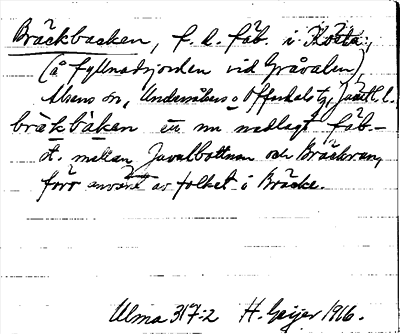 Bräckbacken, f. d. fäb. i Kosta,
(å fyllnadsjorden vid Gråvalen),
Alsens sn, Undersåkers o Offerdals tg, Jämtl. l.
bräkbakken är nu nedlagt fäb.-
st. mellan Javalbottnen och Bräckvan,
förr använt av folket i Bräcke.
Ulma 317:2 H. Geijer 1916.